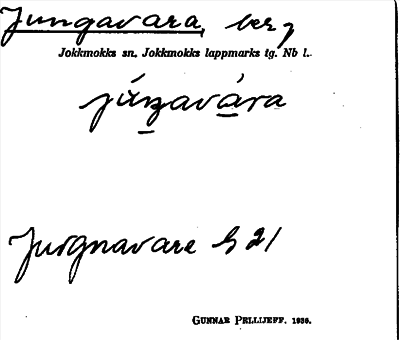 Jungavara, berg
Jokkmokks sn, Jokkmokks lappmarks tg. Nb l.
júŋavára
Jurgnavare S 21
GUNNAR PELLIJEFF. 1936.